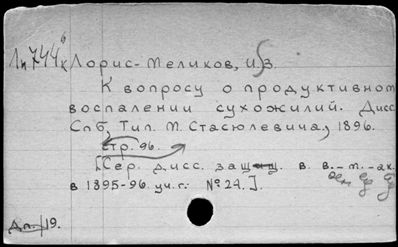 Лп744к Лорис-Меликов, И.З.
К вопросу о продуктивном
воспалении сухожилий. Дисс.
Спб, Тип. М. Стасюлевича, 1896.
стр. 96.
[Сер. дисс. защ. в в.-м.-ак.
в 1895-96 уч. г. № 24.]
Дп./19.